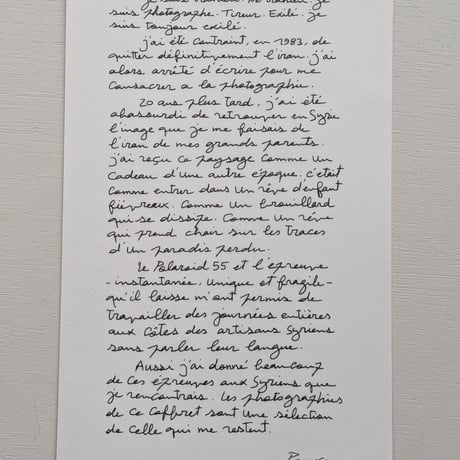 suis photographe. Tireur. Exilé. je
suis toujour exilé.
j'ai été contraint, en 1983, de
quitter définitivement l'iran. j'ai
alors arrêté d'écrire pour me
consacrer a la photographie.
20 ans plus tard, j'ai été
abasourdi de retrouver en Syrie
l'image que je me faisais de
l'iran de mes grands parents.
j'ai reçu ce paysage comme un
cadeau d'une autre époque. c'était
comme entrer dans un rêve d'enfant
fiévreux. Comme un brouillard
qui se dissipe. Comme un rêve
qui prend chair sur les traces
d'un paradis perdu.
le Polaroid 55 et l'épreuve
-instantanée, unique et fragile-
qu'il laisse m'ont permis de
travailler des journées entières
aux côtés des artisans Syriens
sans parler leur langue.
Aussi j'ai donné beaucoup
de ces épreuves aux Syriens que
je rencontrais. les photographies
de ce coffret sont une sélection
de celle qui me restent.